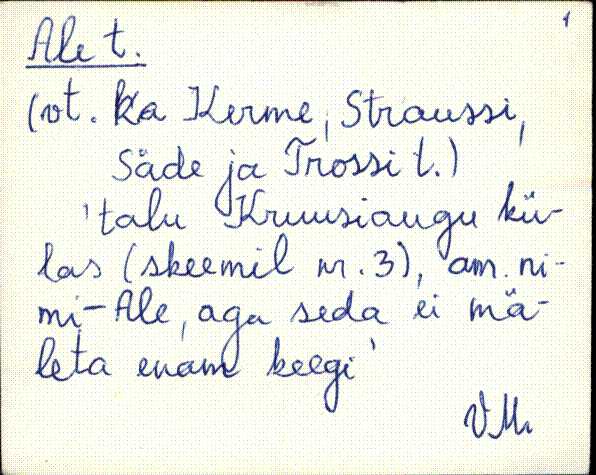 1
Ale t.
(vt. ka Kerme, Straussi,
Säde ja Trossi t.)
'talu Kruusiaugu kü-
las (skeemil nr. 3), am. ni-
mi-Ale, aga seda ei mä-
leta enam keegi'
VM